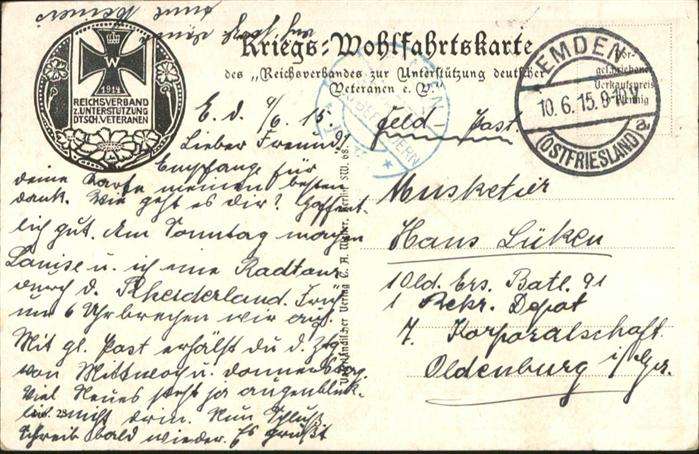 Kriegs-Wohlfahrtskarte
des „Reichsverbandes zur Unterstützung deutscher
Veteranen e. V."
W
1914
REICHSVERBAND
Z. UNTERSTÜTZUNG
DTSCH. VETERANEN
EMDEN
10.6.15.9-10V.
(OSTFRIESLAND)
E. d. 9/6. 15.
Lieber Freund!
Empfange für
deine Karte meinen besten
dank. Wie geht es dir? Hoffent-
lich gut. Am Sonntag machen
Louise u. ich eine Radtour
durch d. Rheiderland. Früh
um 6 Uhr brechen wir auf.
Mit gl. Post erhälst du d. Ztg.
von Mittwoch u. donnerstag.
Viel Neues steht ja augenblick-
lich nicht drin. Nun Schluß
Schreib bald wieder. Es grüßt
Feld Post.
Musketier
Hans Lüken
Old. Ers. Batl. 91
1 Rekr. Depot
7. Korporalschaft
Oldenburg i/Gr.